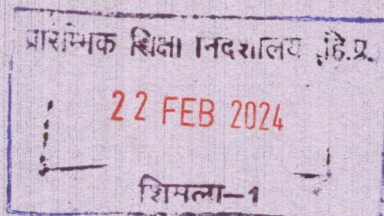 प्रारम्भिक शिक्षा निदेशालय ,हि.प्र.
22 FEB 2024
शिमला-1